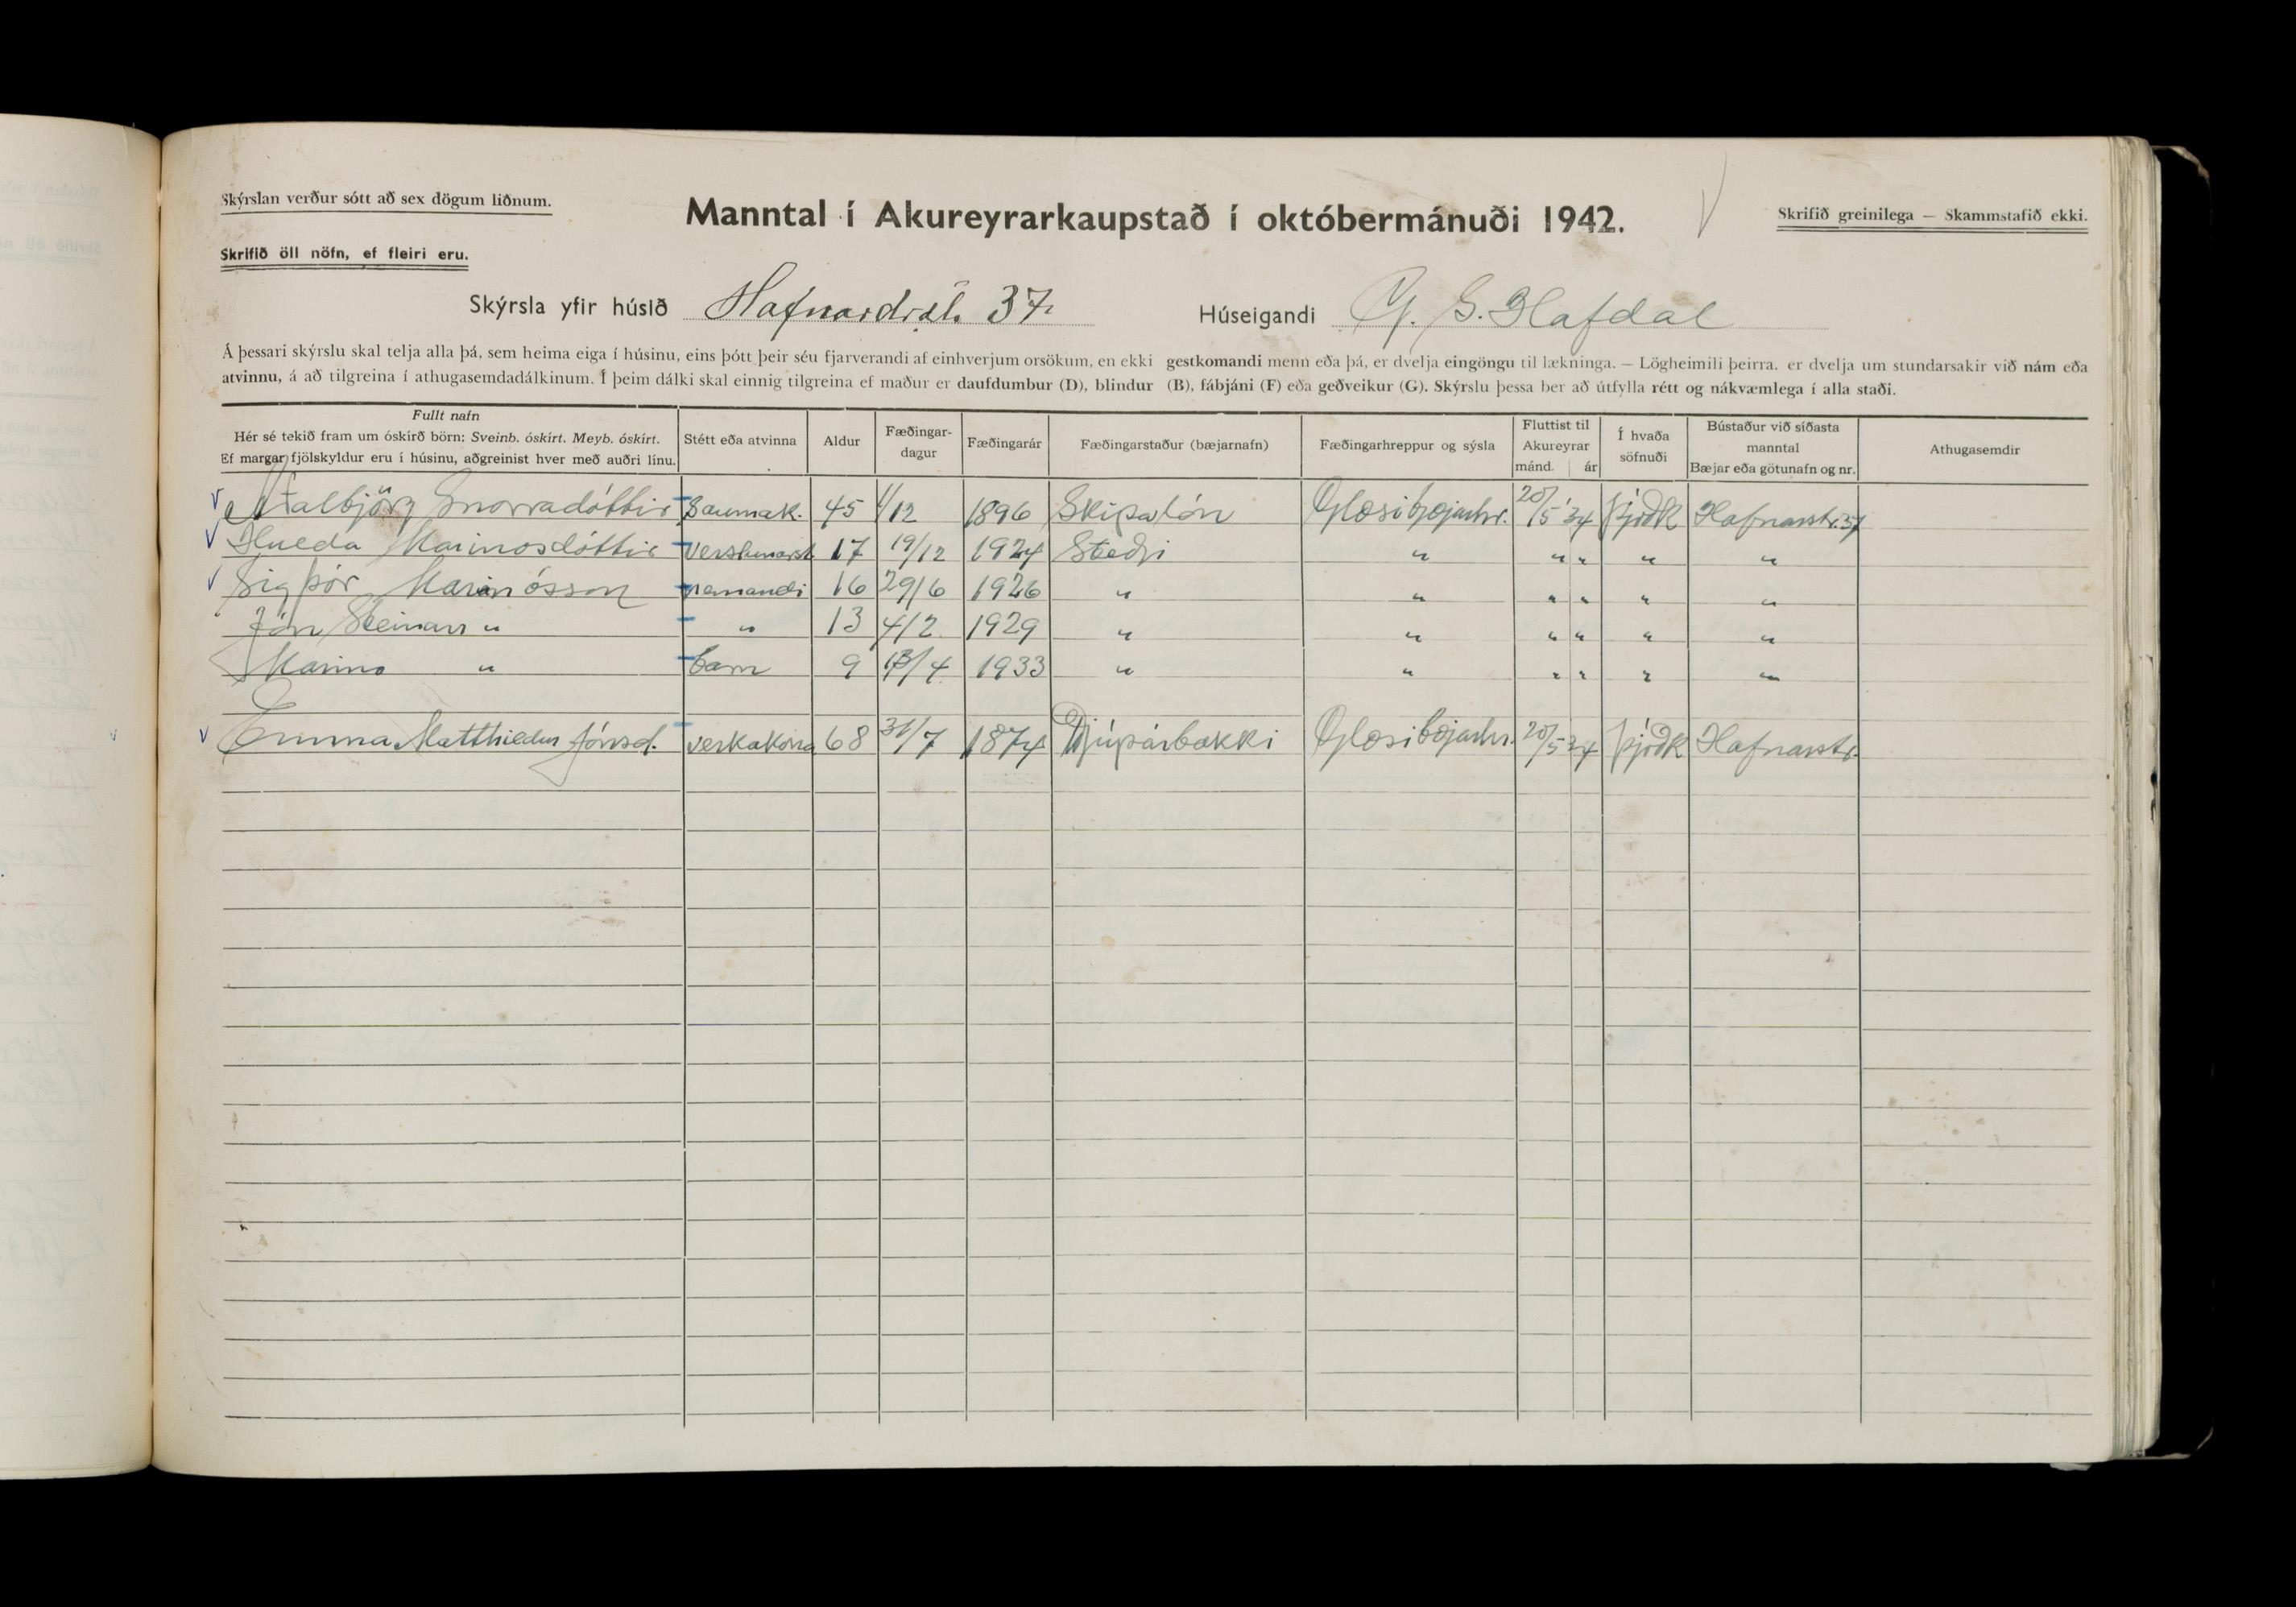 Skýrslan verður sótt að sex dögum liðnum.
Manntal í Akureyrarkaupstað í októbermánuði 1942.
Skrifið greinilega — Skammstafið ekki.
Skrifið öll nöfn, ef fleiri eru.
Skýrsla yfir húsið Hafnarstræti 37 Húseigandi G. S. Hafdal
Á þessari skýrslu skal telja alla þá, sem heima eiga í húsinu, eins þótt þeir séu fjarverandi af einhverjum orsökum, en ekki gestkomandi menn eða þá, er dvelja eingöngu til lækninga. — Lögheimili þeirra. er dvelja um stundarsakir við nám eða
atvinnu, á að tilgreina í athugasemdadálkinum. Í þeim dálki skal einnig tilgreina ef maður er daufdumbur (D), blindur (B), fábjáni (F) eða geðveikur (G). Skýrslu þessa ber að útfylla rétt og nákvæmlega í alla staði.
Fullt nafn
Hér sé tekið fram um óskírð börn: Sveinb. óskírt. Meyb. óskírt.
Ef margar fjölskyldur eru í húsinu, aðgreinist hver með auðri línu.
Stétt eða atvinna
Aldur
Fæðingar-
dagur
Fæðingarár
Fæðingarstaður (bæjarnafn)
Fæðingarhreppur og sýsla
Fluttist til
Akureyrar
mánd. ár
Í hvaða
söfnuði
Bústaður við síðasta
manntal
Bæjar eða götunafn og nr.
Athugasemdir
Aðalbjörg Snorradóttir Saumak. 45 1/12 1896 Skipalón Glæsibæjarhr. 20/5 '34 þjóðk Hafnarstr. 37
Hulda Marinósdóttir 17 19/12 1924 Steðji " " " " "
Sigþór Marinósson nemandi 16 29/6 1926 " " " " " "
Jón Steinarr " " 13 4/2 1929 " " " " " "
Marino " barn 9 /4 1933 " " " " " "
Emma Matthildur Jónsd. verkakona 68 31/7 1874 Djúpárbakki Glæsibæjarhr. 20/5 34 þjóðk Hafnarstr.